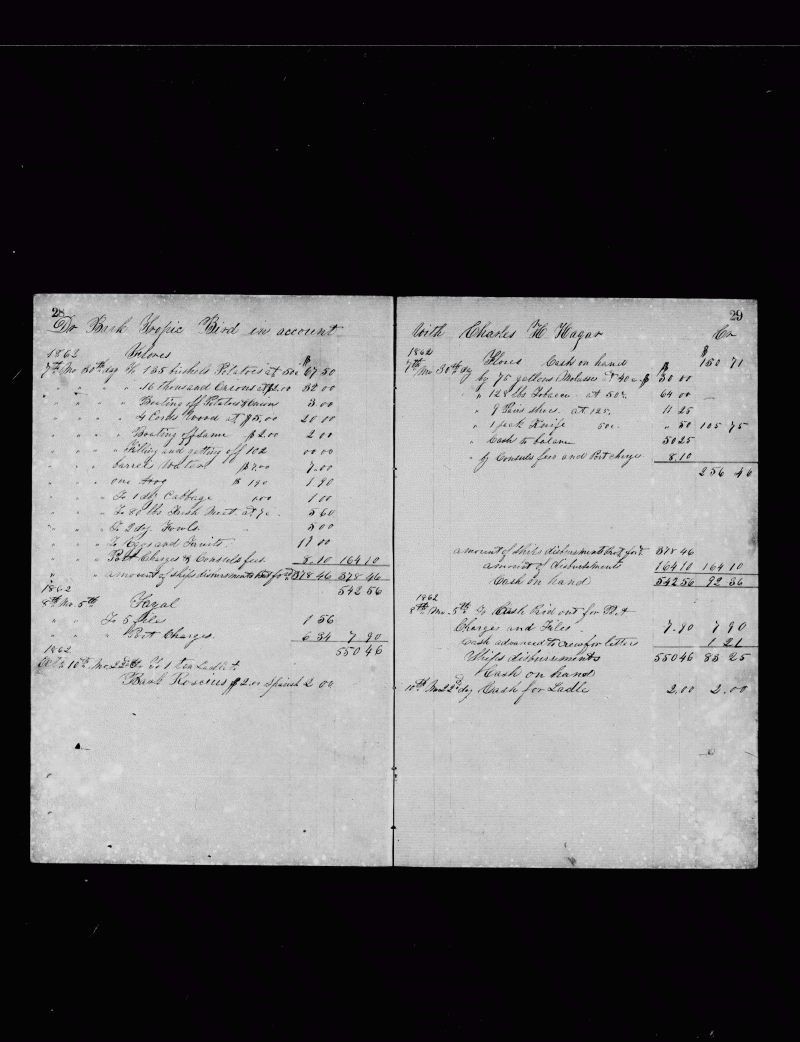 28
Dr Bark Tropic Bird in account
1862 Flores
7th Mo 30th dy To 135 bushels Potatoes at 50c 67 50
" " " 16 thousand Onions at $2.00 32 00
" " " Boating off Potatoes & Onions 3 00
" " " 4 Cords Wood at $5,00 20 00
" " " Boating off same $2.00 2 00
" " " Filling and getting off 102 00 00
" " " barrels Water $7.00 7.00
" " " one Hog $ 1 90 1.90
" " " To 1 dz Cabbage 1 00
" " " To 80 lbs Fresh Meat at 7c 5 60
" " " To 2 dz Fowls 5 00
" " " To Eggs and Fruits 11 00
" " " Port Charges & Consuls fees 8.10 164 10
" " " amount of ships disbursements brot for'd 378 46 378 46
1862 542 56
8th Mo 5th Fayal
" " To 8 files 1 56
" " " Port Charges 6 34 7 90
1862 550 46
10th Mo 22d To 1 tea Ladle
Bark Roscius $2. or Spanish 2 00
29
With Charles H. Hagar Cr
1862 $
7th Mo 30th dy Flores Cash on hand 150 71
by 75 gallons Molasses at 40c $ 30 00
" 128 lbs Tobacco at 50c 64 00
" 9 Pairs shoes at 125, 11 25
" 1 jack Knife 50c " 50 105 75
" Cash to balance 50 25
" by Consuls fees and Port charge 8.10
256 46
amount of ships disbursements brot for'd 378 46
amount of disbursements 164 10 164 10
Cash on hand 542 56 92 36
1862
8th Mo 5th To Cash Paid out for Port
Charges and Files 7.90 7 90
Cash advanced to crew for letters 1 21
Ships disbursements 550 46 83 25
Cash on hand
10th Mo 22d dy Cash for Ladle 2.00 2.00